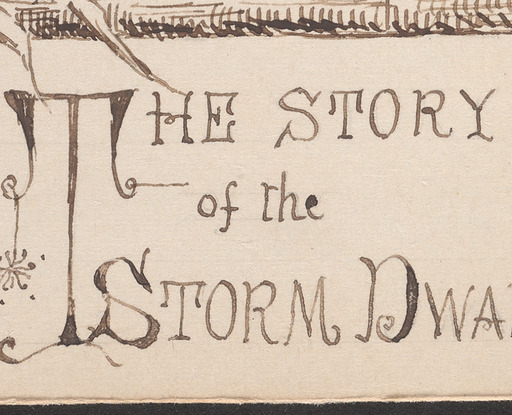 THE STORY
of the
STORM DWA